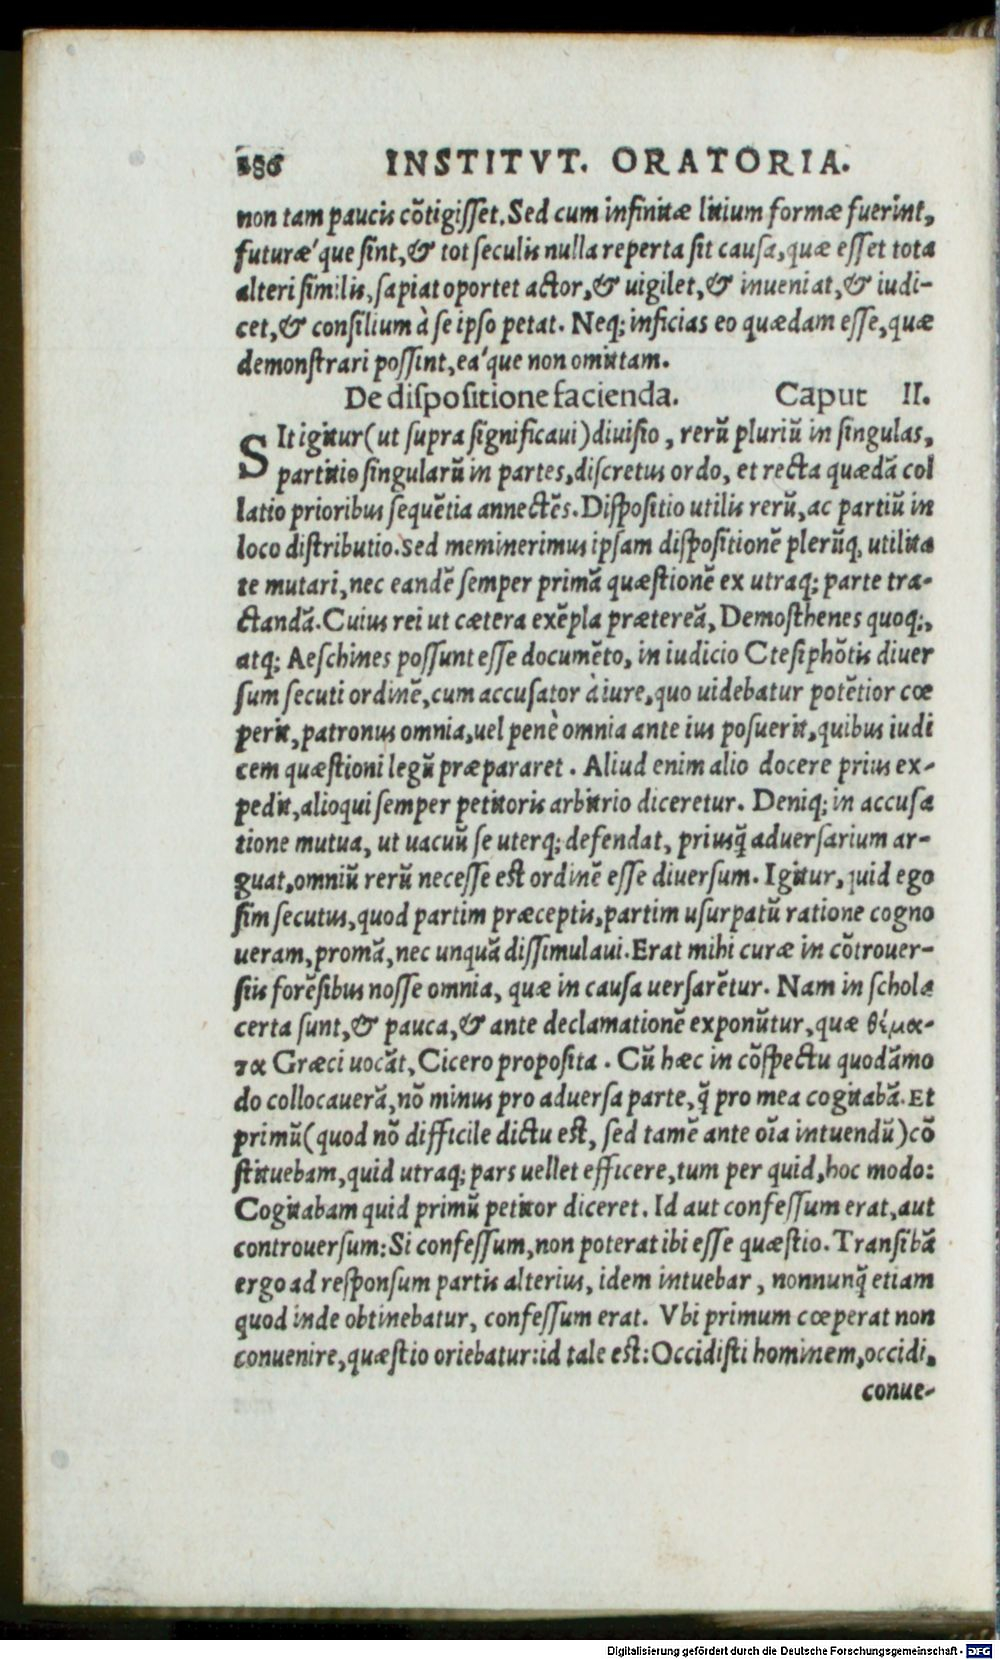 286 INSTITVT. ORATORIA.
non tam paucis cõtigisset. Sed cum infinitæ litium formæ fuerint,
futuræ'que sint, & tot seculis nulla reperta sit causa, quæ esset tota
alteri similis, sapiat oportet actor, & uigilet, & inueniat, & iudi-
cet, & consilium à se ipso petat. Neq; inficias eo quædam esse, quæ
demonstrari possint, ea'que non omittam.
De dispositione facienda. Caput II.
SIt igitur (ut supra significaui) diuisio, rerũ pluriũ in singulas,
partitio singularũ in partes, discretus ordo, et recta quædã col
latio prioribus sequẽtia annectẽs. Dispositio utilis rerũ, ac partiũ in
loco distributio. Sed meminerimus ipsam dispositionẽ plerũq; utilita
te mutari, nec eandẽ semper primã quæstionẽ ex utraq; parte tra-
ctandã. Cuius rei ut cætera exẽpla prætereã, Demosthenes quoq;,
atq; Aeschines possunt esse documẽto, in iudicio Ctesiphõtis diuer
sum secuti ordinẽ, cum accusator à iure, quo uidebatur potẽtior cœ
perit, patronus omnia, uel penè omnia ante ius posuerit, quibus iudi
cem quæstioni legũ præpararet. Aliud enim alio docere prius ex-
pedit, alioqui semper petitoris arbitrio diceretur. Deniq; in accusa
tione mutua, ut uacuũ se uterq; defendat, priusq̃ aduersarium ar-
guat, omniũ rerũ necesse est ordinẽ esse diuersum. Igitur, quid ego
sim secutus, quod partim præceptis, partim usurpatũ ratione cogno
ueram, promã, nec unquã dissimulaui. Erat mihi curæ in cõtrouer-
siis forẽsibus nosse omnia, quæ in causa uersarẽtur. Nam in schola
certa sunt, & pauca, & ante declamationẽ exponũtur, quæ θέμα-
τα Græci uocãt, Cicero proposita. Cũ hæc in cõspectu quodãmo
do collocauerã, nõ minus pro aduersa parte, q̃ pro mea cogitabã. Et
primũ (quod nõ difficile dictu est, sed tamẽ ante oĩa intuendũ) cõ
stituebam, quid utraq; pars uellet efficere, tum per quid, hoc modo:
Cogitabam quid primũ petitor diceret. Id aut confessum erat, aut
controuersum: Si confessum, non poterat ibi esse quæstio. Transibã
ergo ad responsum partis alterius, idem intuebar, nonnunq̃ etiam
quod inde obtinebatur, confessum erat. Vbi primum cœperat non
conuenire, quæstio oriebatur: id tale est: Occidisti hominem, occidi,
conue-
Digitalisierung gefördert durch die Deutsche Forschungsgemeinschaft - DFG